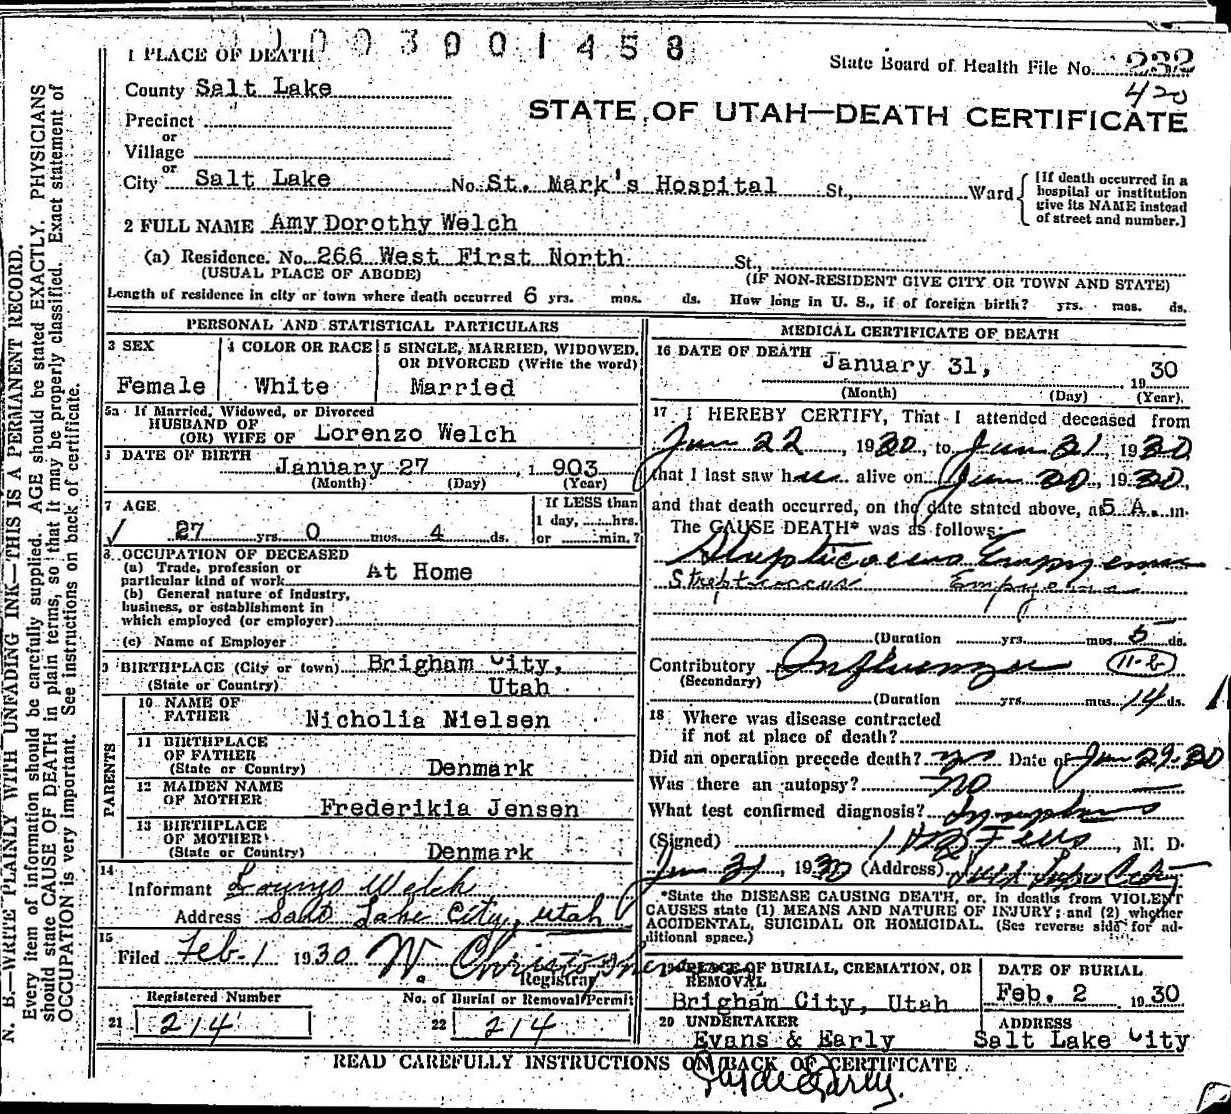 1003001458
1 PLACE OF DEATH
State Board of Health File No. 232
420
County Salt Lake
STATE OF UTAH—DEATH CERTIFICATE
Precinct
or
Village
or
City Salt Lake No. St. Mark's Hospital St., Ward
[If death occurred in a
hospital or institution
give its NAME instead
of street and number.]
2 FULL NAME Amy Dorothy Welch
(a) Residence. No. 266 West First North St.,
(USUAL PLACE OF ABODE) (IF NON-RESIDENT GIVE CITY OR TOWN AND STATE)
Length of residence in city or town where death occurred 6 yrs. mos. ds. How long in U. S., if of foreign birth? yrs. mos. ds.
PERSONAL AND STATISTICAL PARTICULARS
3 SEX 4 COLOR OR RACE 5 SINGLE, MARRIED, WIDOWED,
OR DIVORCED (Write the word)
Female White Married
5a If Married, Widowed, or Divorced
HUSBAND OF
(OR) WIFE OF Lorenzo Welch
DATE OF BIRTH
January 27 1903
(Month) (Day) (Year)
7 AGE If LESS than
1 day, hrs.
27 yrs. 0 mos. 4 ds. or min.?
8 OCCUPATION OF DECEASED
(a) Trade, profession or
particular kind of work At Home
(b) General nature of industry,
business, or establishment in
which employed (or employer)
(c) Name of Employer
9 BIRTHPLACE (City or town) Brigham City,
(State or Country) Utah
PARENTS
10 NAME OF
FATHER Nicholia Nielsen
11 BIRTHPLACE
OF FATHER
(State or Country) Denmark
12 MAIDEN NAME
OF MOTHER Frederikia Jensen
13 BIRTHPLACE
OF MOTHER
(State or Country) Denmark
14
Informant Welch
Address Salt Lake City, Utah
15
Filed Feb. 1 1930 W. Christophers
Registrar
Registered Number No. of Burial or Removal Permit
21 214 22 214
MEDICAL CERTIFICATE OF DEATH
16 DATE OF DEATH January 31, 1930
(Month) (Day) (Year)
17 I HEREBY CERTIFY, That I attended deceased from
Jan 22, 1930, to Jan 31, 1930
that I last saw her alive on Jan 30, 1930,
and that death occurred, on the date stated above, at 5 A. m.
The CAUSE DEATH* was as follows:
Strepticoccus Empyema
Streptococcus Empyema
(Duration yrs. mos. 5 ds.
Contributory Influenza 11-b
(Secondary)
(Duration yrs. mos. 14 ds.
18 Where was disease contracted
if not at place of death?
Did an operation precede death? Date of Jan 29-30
Was there an autopsy? no
What test confirmed diagnosis?
(Signed) M. D.
Jan 31, 1930 (Address) Salt Lake City
*State the DISEASE CAUSING DEATH, or, in deaths from VIOLENT
CAUSES state (1) MEANS AND NATURE OF INJURY; and (2) whether
ACCIDENTAL, SUICIDAL OR HOMICIDAL. (See reverse side for ad-
ditional space.)
19 PLACE OF BURIAL, CREMATION, OR
REMOVAL
Brigham City, Utah
DATE OF BURIAL
Feb. 2 1930
20 UNDERTAKER ADDRESS
Evans & Early Salt Lake City
READ CAREFULLY INSTRUCTIONS ON BACK OF CERTIFICATE
N. B.—WRITE PLAINLY WITH UNFADING INK—THIS IS A PERMANENT RECORD.
Every item of information should be carefully supplied. AGE should be stated EXACTLY. PHYSICIANS
should state CAUSE OF DEATH in plain terms, so that it may be properly classified. Exact statement of
OCCUPATION is very important. See instructions on back of certificate.